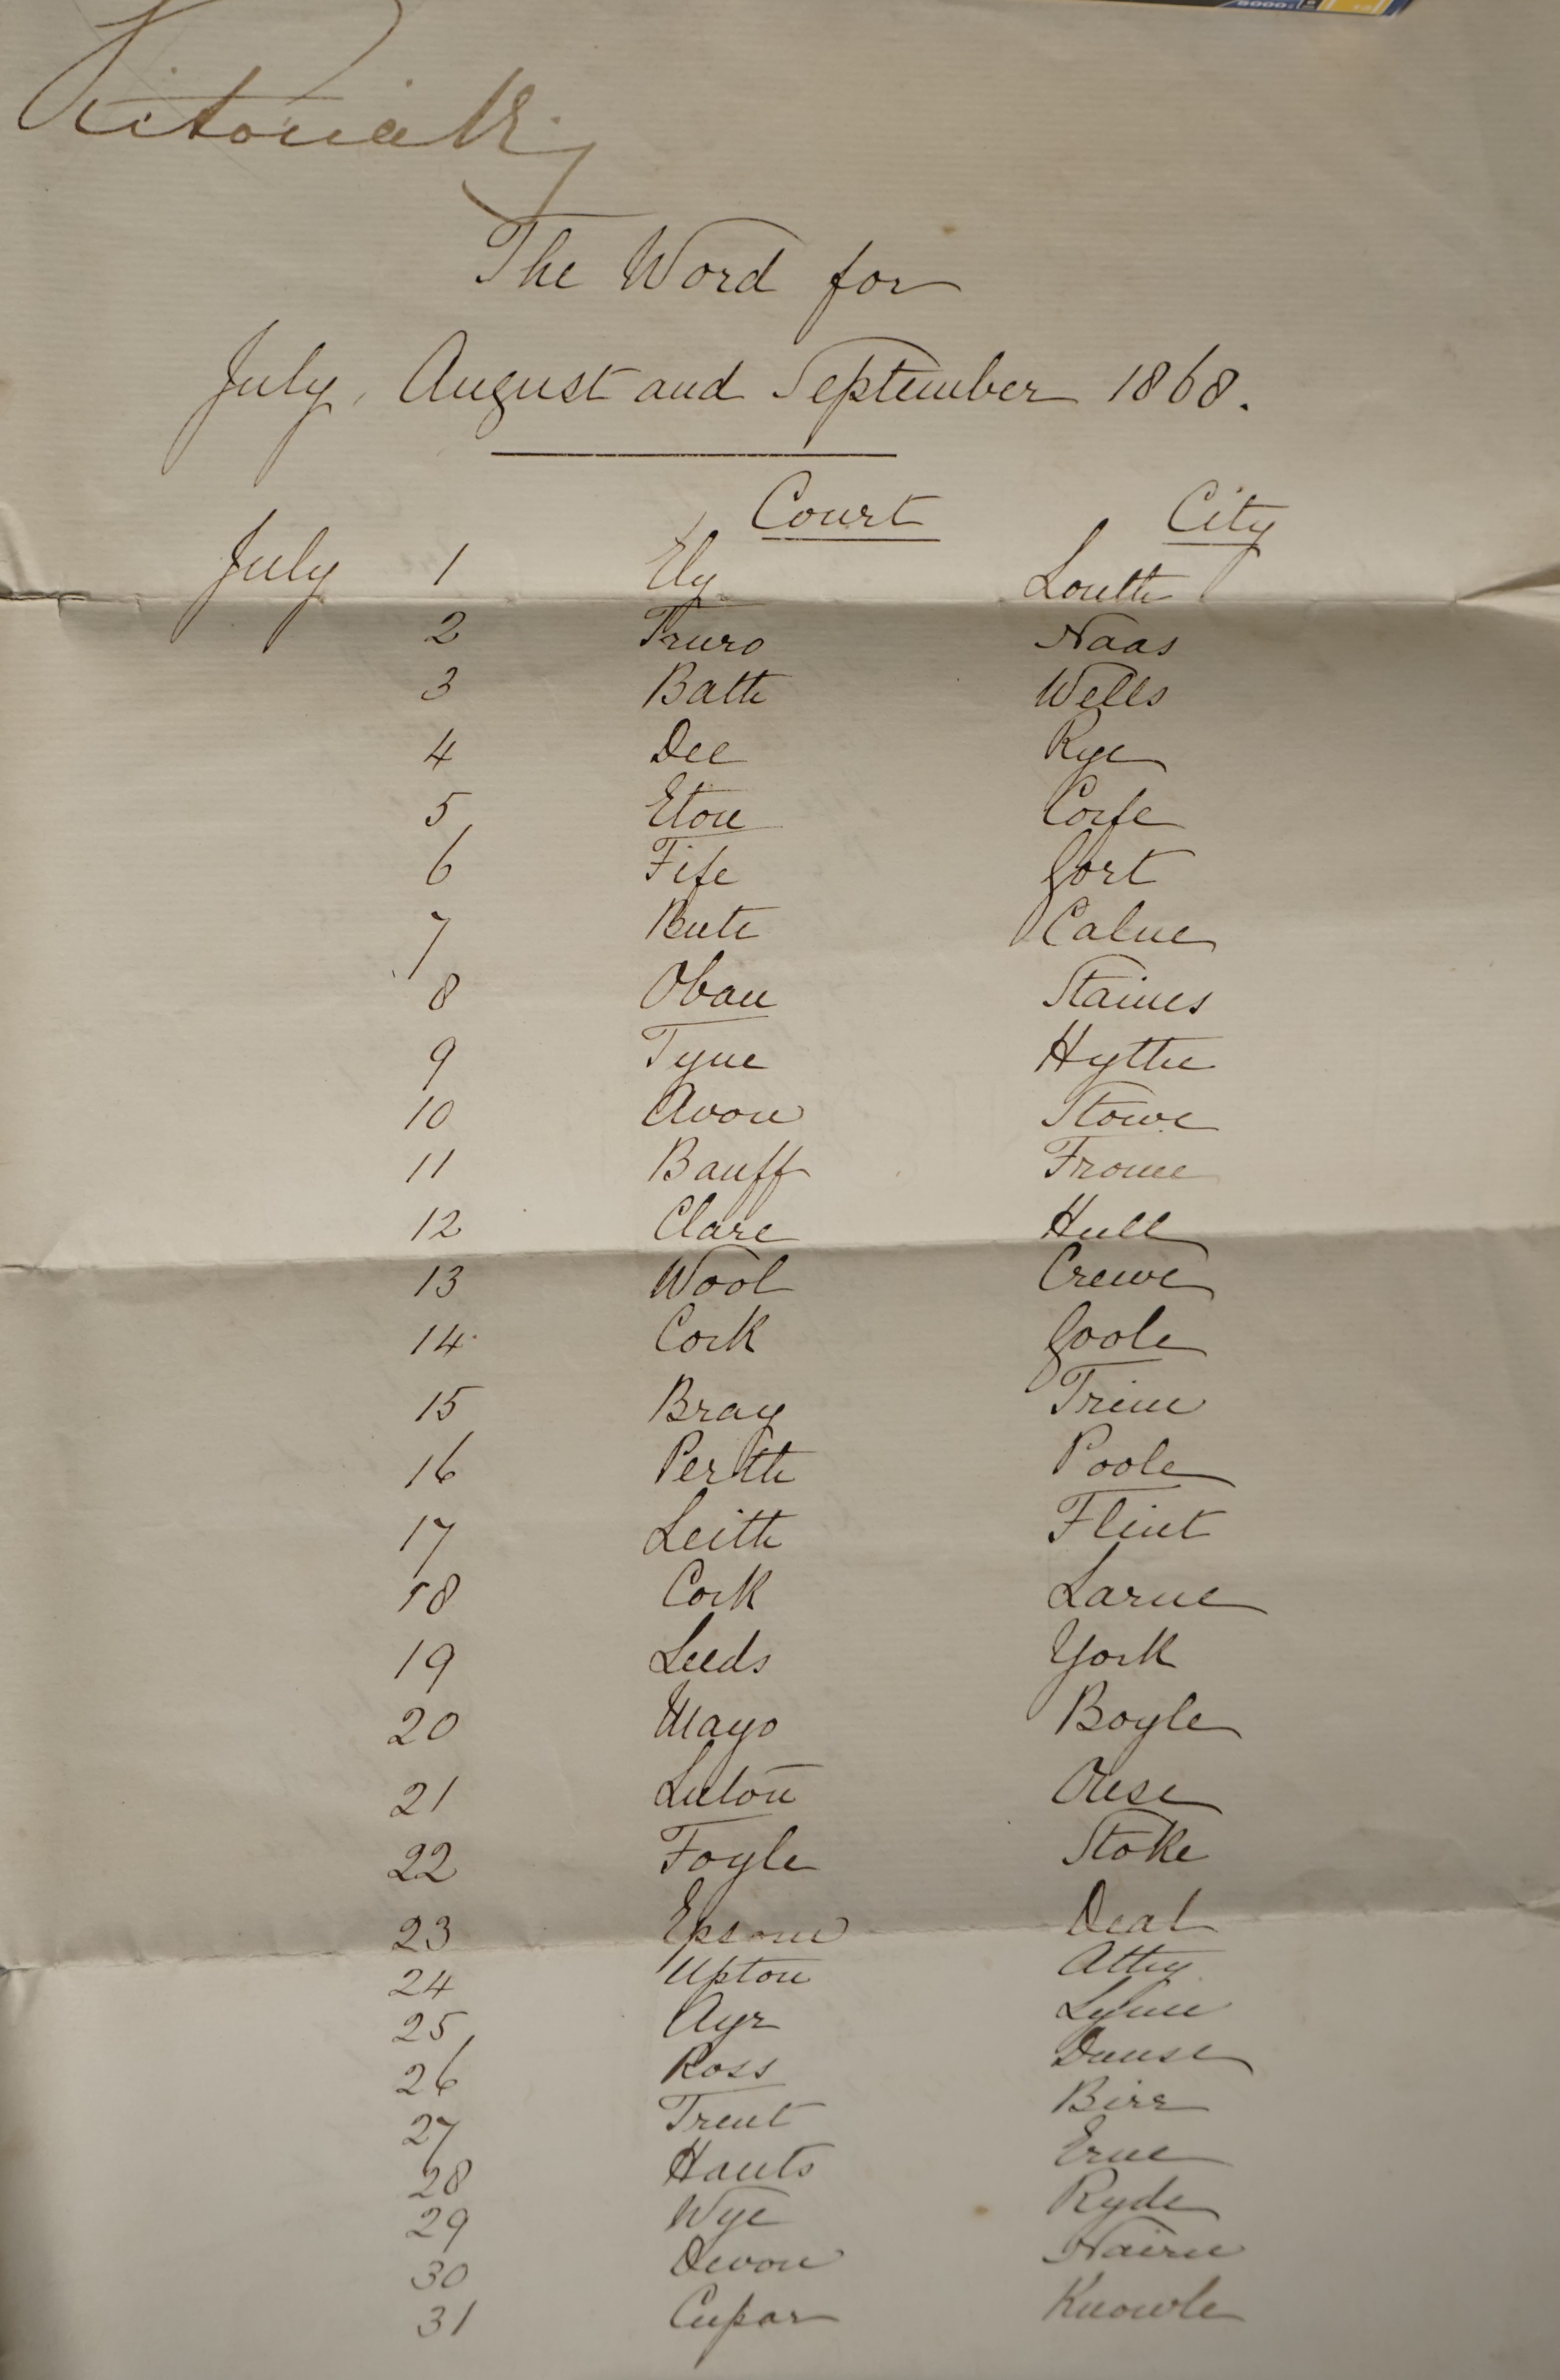 Victoria R
The Word for
July, August and September 1868.
Court City
July 1 Ely Louth
2 Truro Naas
3 Bath Wells
4 Dee Rye
5 Eton Corfe
6 Fife Gort
7 Bute Calne
8 Oban Staines
9 Tyne Hythe
10 Avon Stowe
11 Banff Frome
12 Clare Hull
13 Wool Crewe
14 Cork Goole
15 Bray Trim
16 Perth Poole
17 Leith Flint
18 Cork Larne
19 Leeds York
20 Mayo Boyle
21 Luton Ouse
22 Foyle Stoke
23 Epsom Deal
24 Upton Athy
25 Ayr Lynn
26 Ross Dunse
27 Trent Birr
28 Hants Erne
29 Wye Ryde
30 Devon Nairn
31 Cupar Knowle